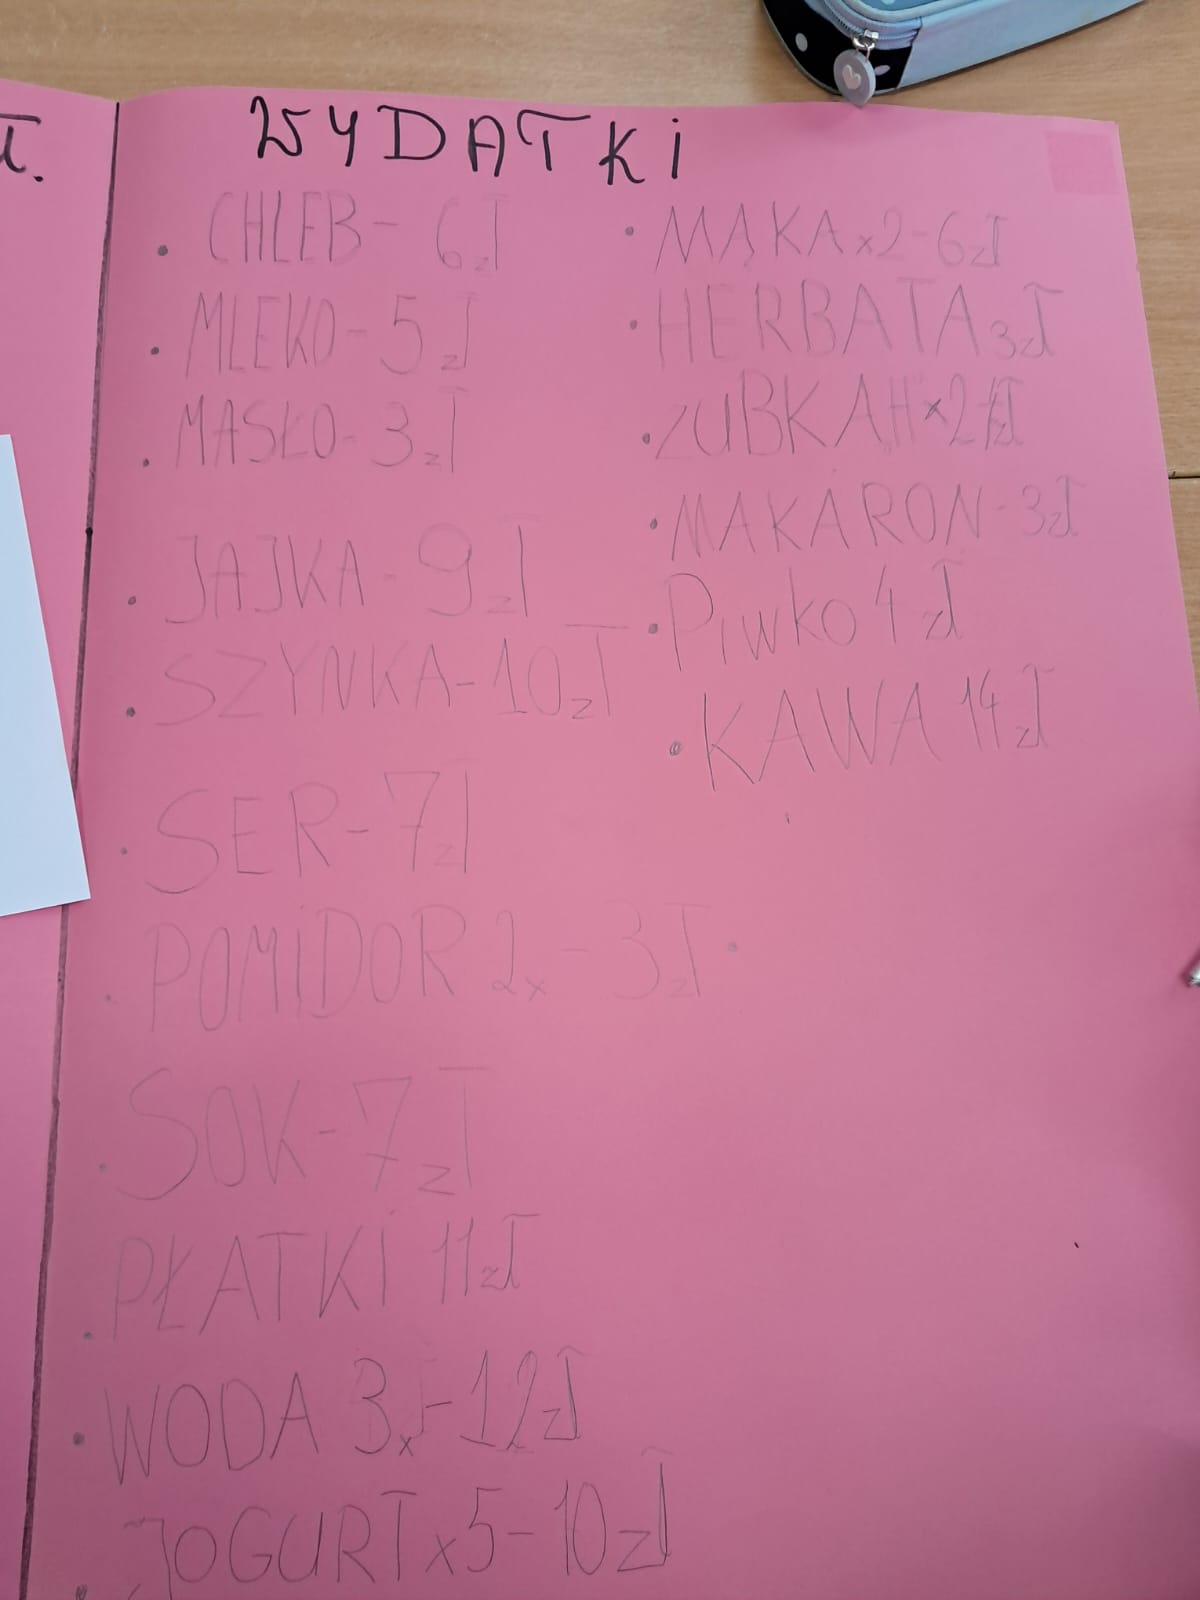 WYDATKI
• CHLEB - 6 zł
• MLEKO - 5 zł
• MASŁO - 3 zł
• JAJKA - 9 zł
• SZYNKA - 10 zł
• SER - 7 zł
• POMIDOR 2x - 3 zł
• SOK - 7 zł
• PŁATKI 11 zł
• WODA 3x - 12 zł
• JOGURT x5 - 10 zł
• MĄKA x2 - 6 zł
• HERBATA 3 zł
• x2 zł
• MAKARON - 3 zł
• Piwko 4 zł
• KAWA 14 zł